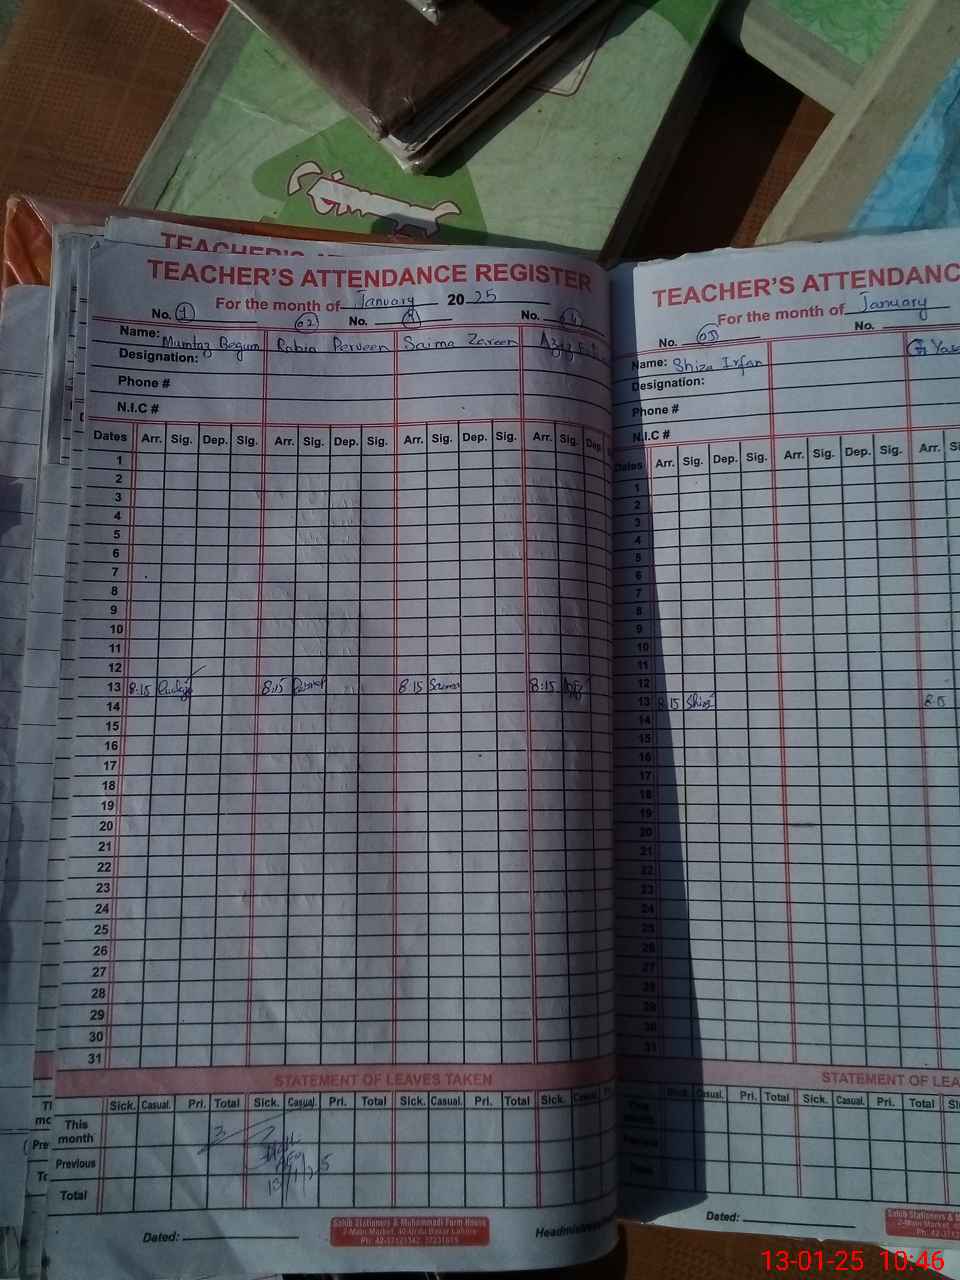 TEACHER'S ATTENDANCE REGISTER
For the month of January 2025
No. 1 02 No. No.
Name: Mumtaz Begum Rabia Perveen Saima Zareen
Designation:
Phone #
N.I.C #
Dates Arr. Sig. Dep. Sig. Arr. Sig. Dep. Sig. Arr. Sig. Dep. Sig. Arr. Sig. Dep.
1
2
3
4
5
6
7
8
9
10
11
12
13 8:15 8:15 8:15 Saima 8:15
14
15
16
17
18
19
20
21
22
23
24
25
26
27
28
29
30
31
STATEMENT OF LEAVES TAKEN
Sick. Casual. Pri. Total Sick. Casual. Pri. Total Sick. Casual. Pri. Total Sick.
This month
Previous
Total
13/1/25
Dated:
Sahib Stationers & Muhammadi Form House
Headmistress
TEACHER'S ATTENDANCE
For the month of January
No. No.
Name: Shiza Irfan
Designation:
Phone #
N.I.C #
Dates Arr. Sig. Dep. Sig. Arr. Sig. Dep. Sig. Arr.
1
2
3
4
5
6
7
8
9
10
11
12
13 8:15 Shiza 8:15
14
15
16
17
18
19
20
21
22
23
24
25
26
27
28
29
30
31
STATEMENT OF
Sick. Casual. Pri. Total Sick. Casual. Pri. Total
Dated:
Sahib Stationers &
13-01-25 10:46